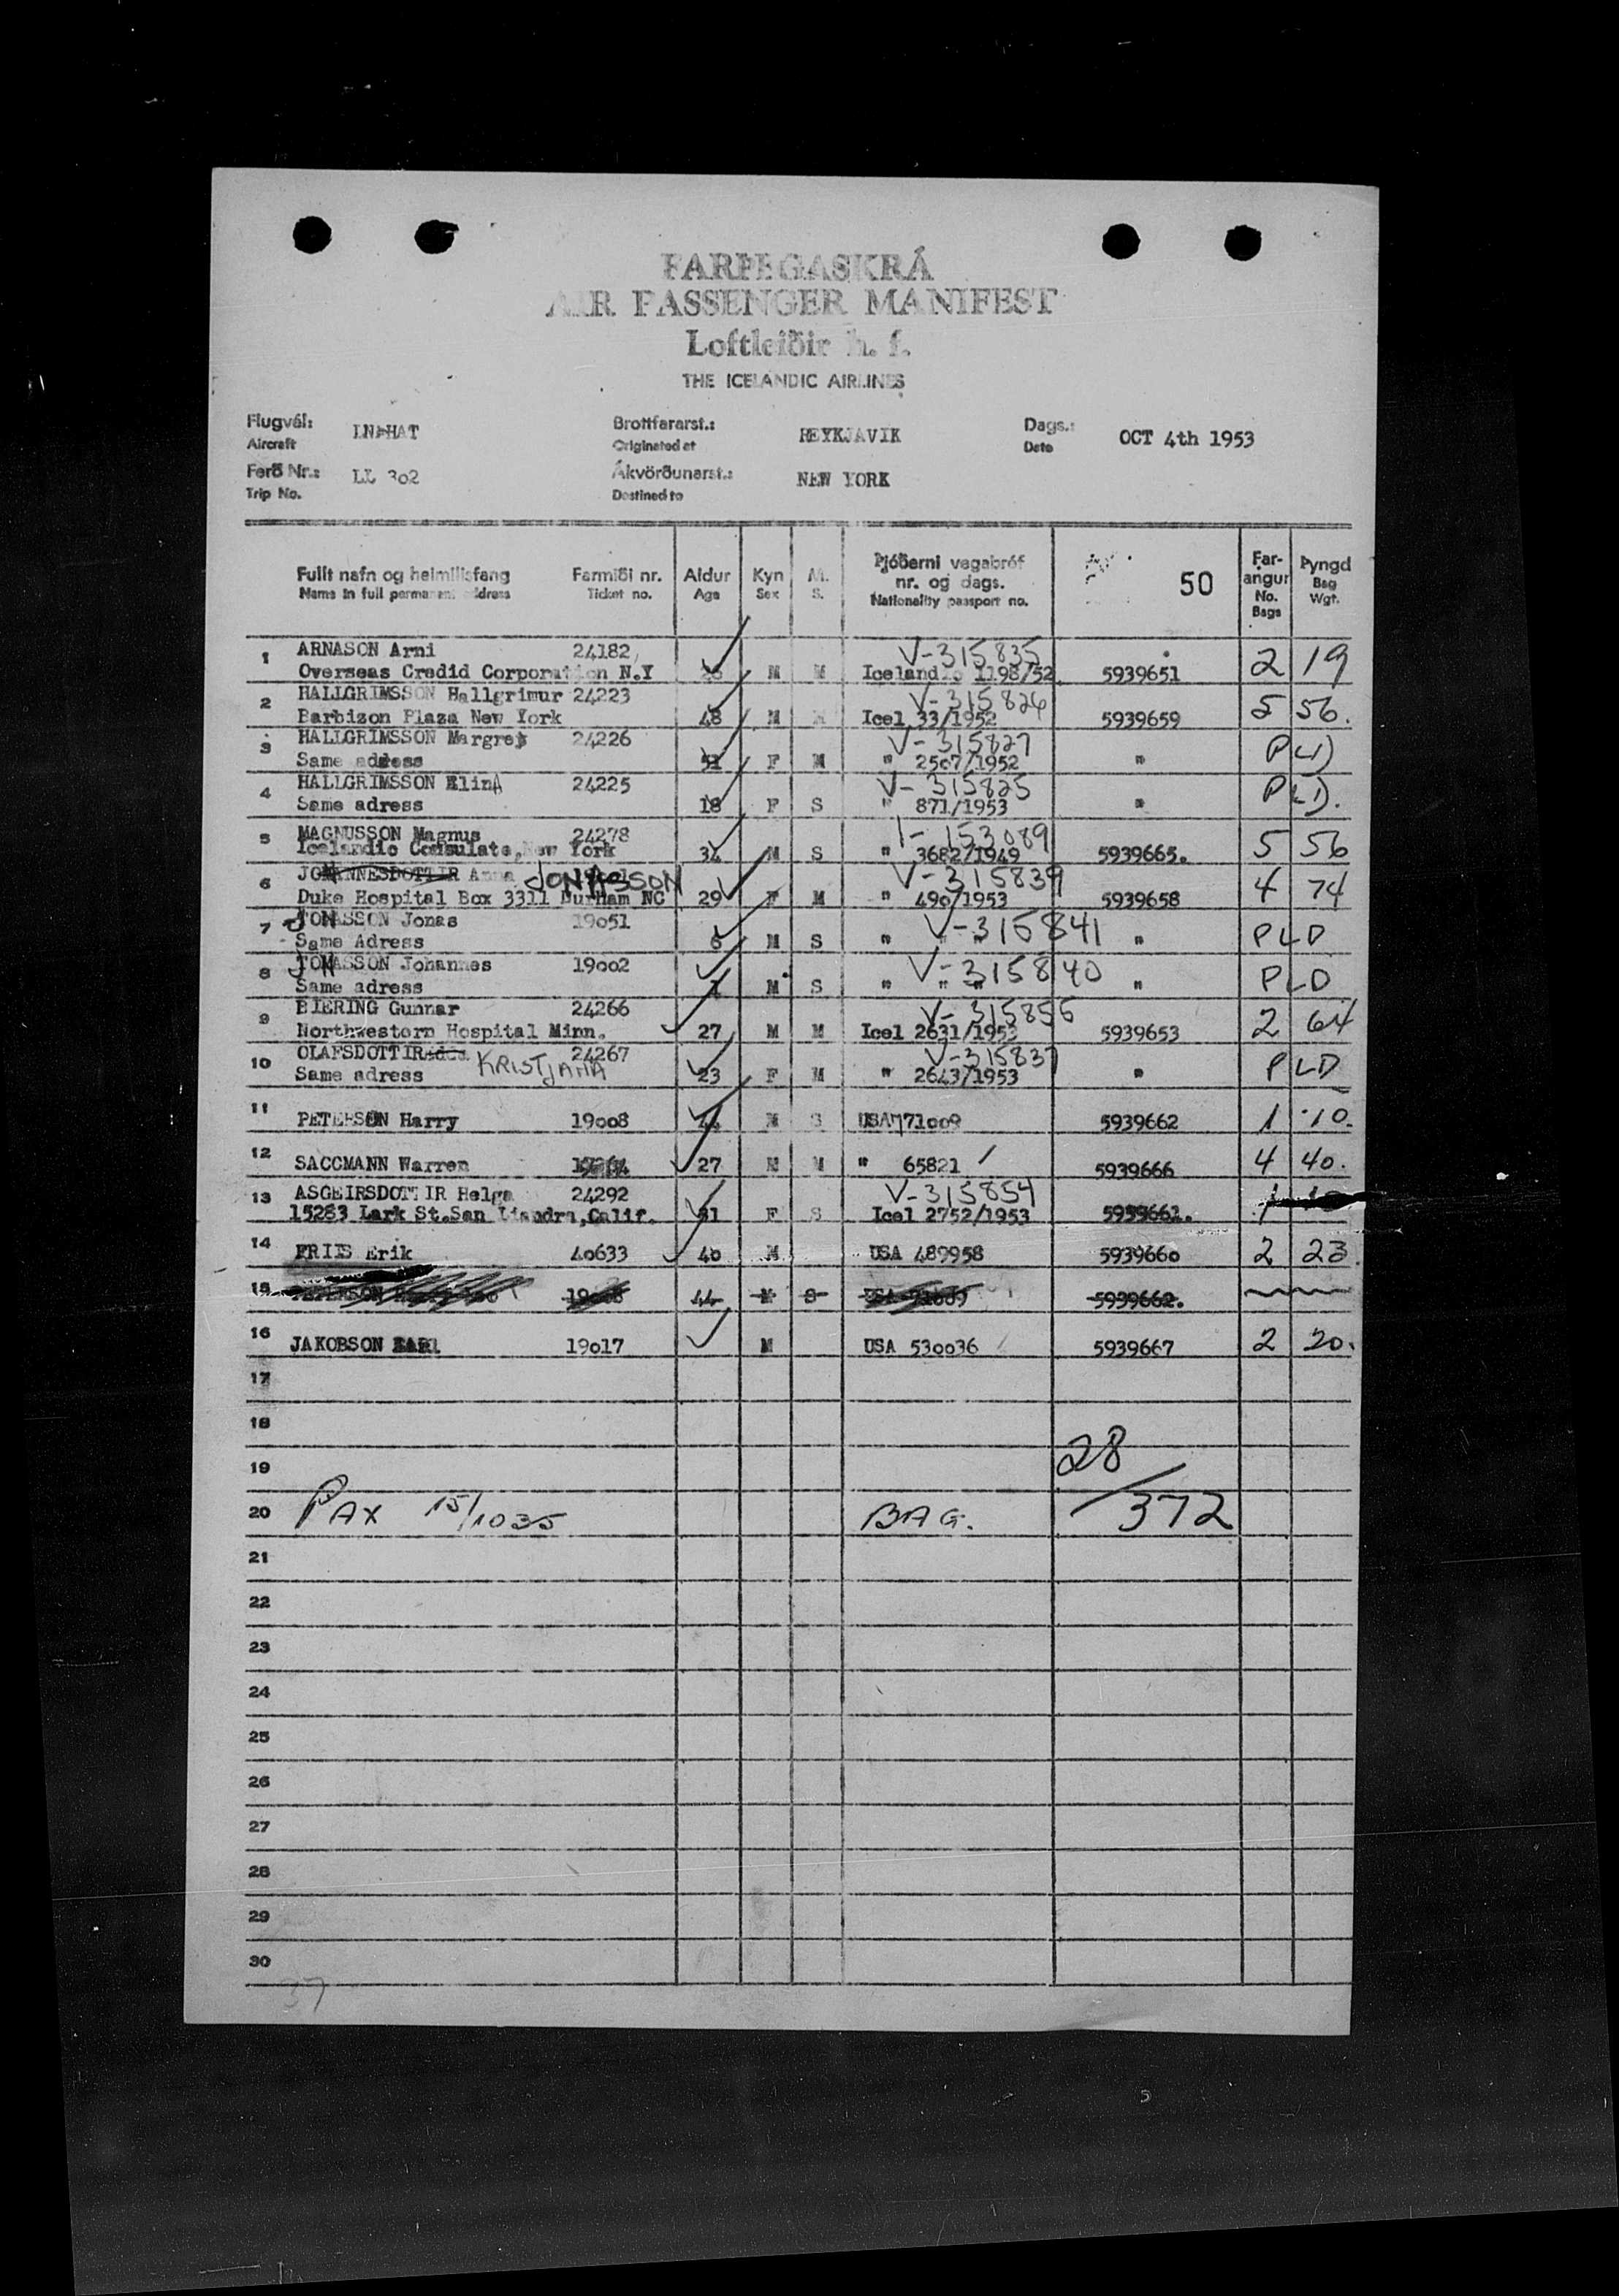 FARÞEGASKRÁ
AIR PASSENGER MANIFEST
Loftleiðir h. f.
THE ICELANDIC AIRLINES
Flugvél: LN-HAT Brottfararst.: REYKJAVIK Dags.: OCT 4th 1953
Aircraft Originated at Date
Ferð Nr.: LL 302 Ákvörðunarst.: NEW YORK
Trip No. Destined to
Fullt nafn og heimilisfang Farmiði nr. Aldur Kyn Þjóðerni vegabréf nr. og dags. 50 Far-angur Þyngd
Name in full permanent address Ticket no. Age Sex S. Nationality passport no. No. Bags Bag Wgt.
1 ARNASON Arni 24182 V-315835
Overseas Credid Corporation N.Y M M Icelandic 1198/52 5939651 2 19
2 HALLGRIMSSON Hallgrimur 24223 V-315826
Barbizon Plaza New York 48 M Icel 33/1952 5939659 5 56.
3 HALLGRIMSSON Margret 24226 V-315827
Same adress 51 F M " 2507/1952 " PLD
4 HALLGRIMSSON ElinA 24225 V-315825
Same adress 18 F S " 871/1953 " PLD.
5 MAGNUSSON Magnus 24278 I-153089
Icelandic Consulate, New York 34 M S " 3682/1949 5939665. 5 56
6 JOHANNESDOTTIR Anna JONASSON V-315839
Duke Hospital Box 3311 Durham NC 29 F M " 490/1953 5939658 4 74
7 JONASSON Jonas 19051 V-315841
Same Adress 6 M S " " " " PLD
8 JONASSON Johannes 19002 V-315840
Same adress M S " " " " PLD
9 BIERING Gunnar 24266 V-315856
Northwestern Hospital Minn. 27 M M Icel 2631/1953 5939653 2 64
10 OLAFSDOTTIR KRISTJANA 24267 V-315837
Same adress 23 F M " 2643/1953 " PLD
11 PETERSON Harry 19008 M S USA 71009 5939662 1 10.
12 SACCMANN Warren 27 M M " 65821 5939666 4 40.
13 ASGEIRSDOTTIR Helga 24292 V-315854
15283 Lark St.San Liandra,Calif. F S Icel 2752/1953 5939661. 1 10
14 FRIIS Erik 40633 40 M USA 489958 5939660 2 23
15 PETERSON 44 M S USA 5939662.
16 JAKOBSON 19017 M USA 530036 5939667 2 20.
17
18
19 28
20 PAX 15/1035 BAG. /372
21
22
23
24
25
26
27
28
29
30
37